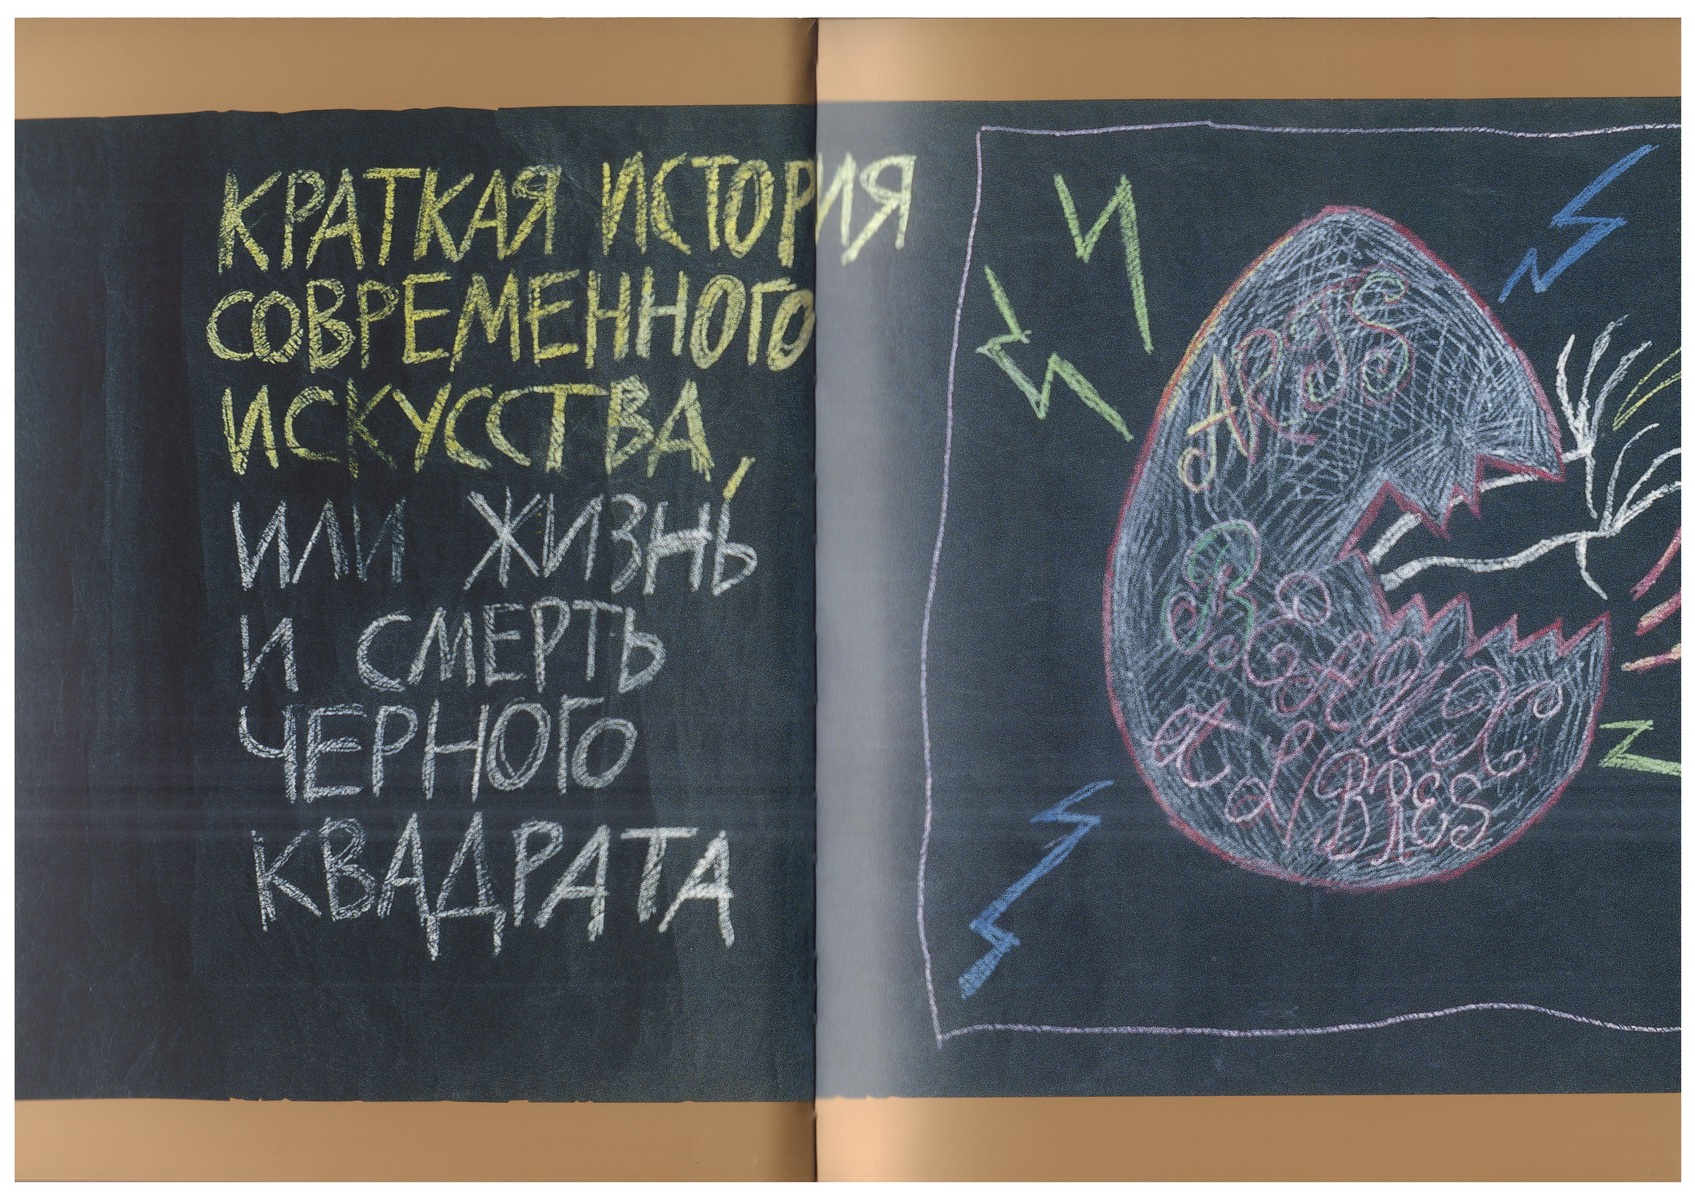 КРАТКАЯ ИСТОРИЯ
СОВРЕМЕННОГО
ИСКУССТВА,
ИЛИ ЖИЗНЬ
И СМЕРТЬ
ЧЕРНОГО
КВАДРАТА
ARTS